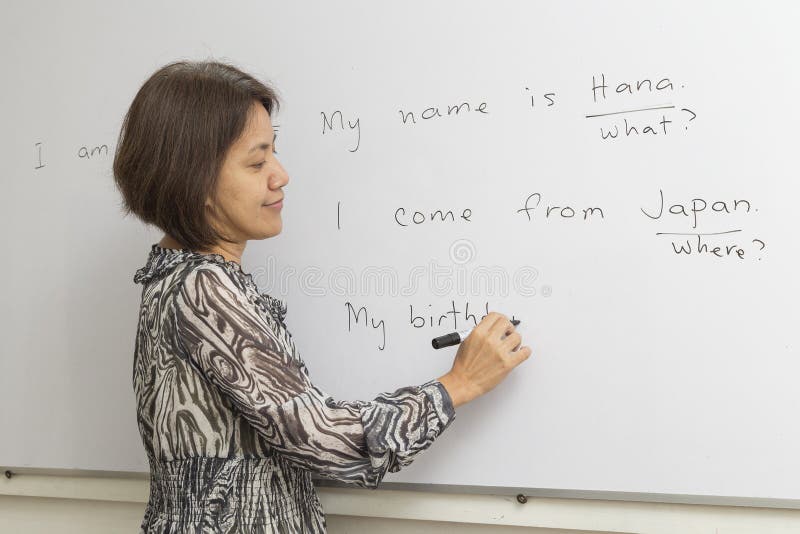 My name is Hana.
what?
I am
I come from Japan.
where?
My birth